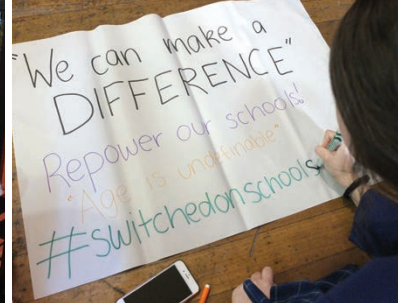 "We can make a
DIFFERENCE"
Repower our schools!
"Age is undefinable"
#switchedonschools